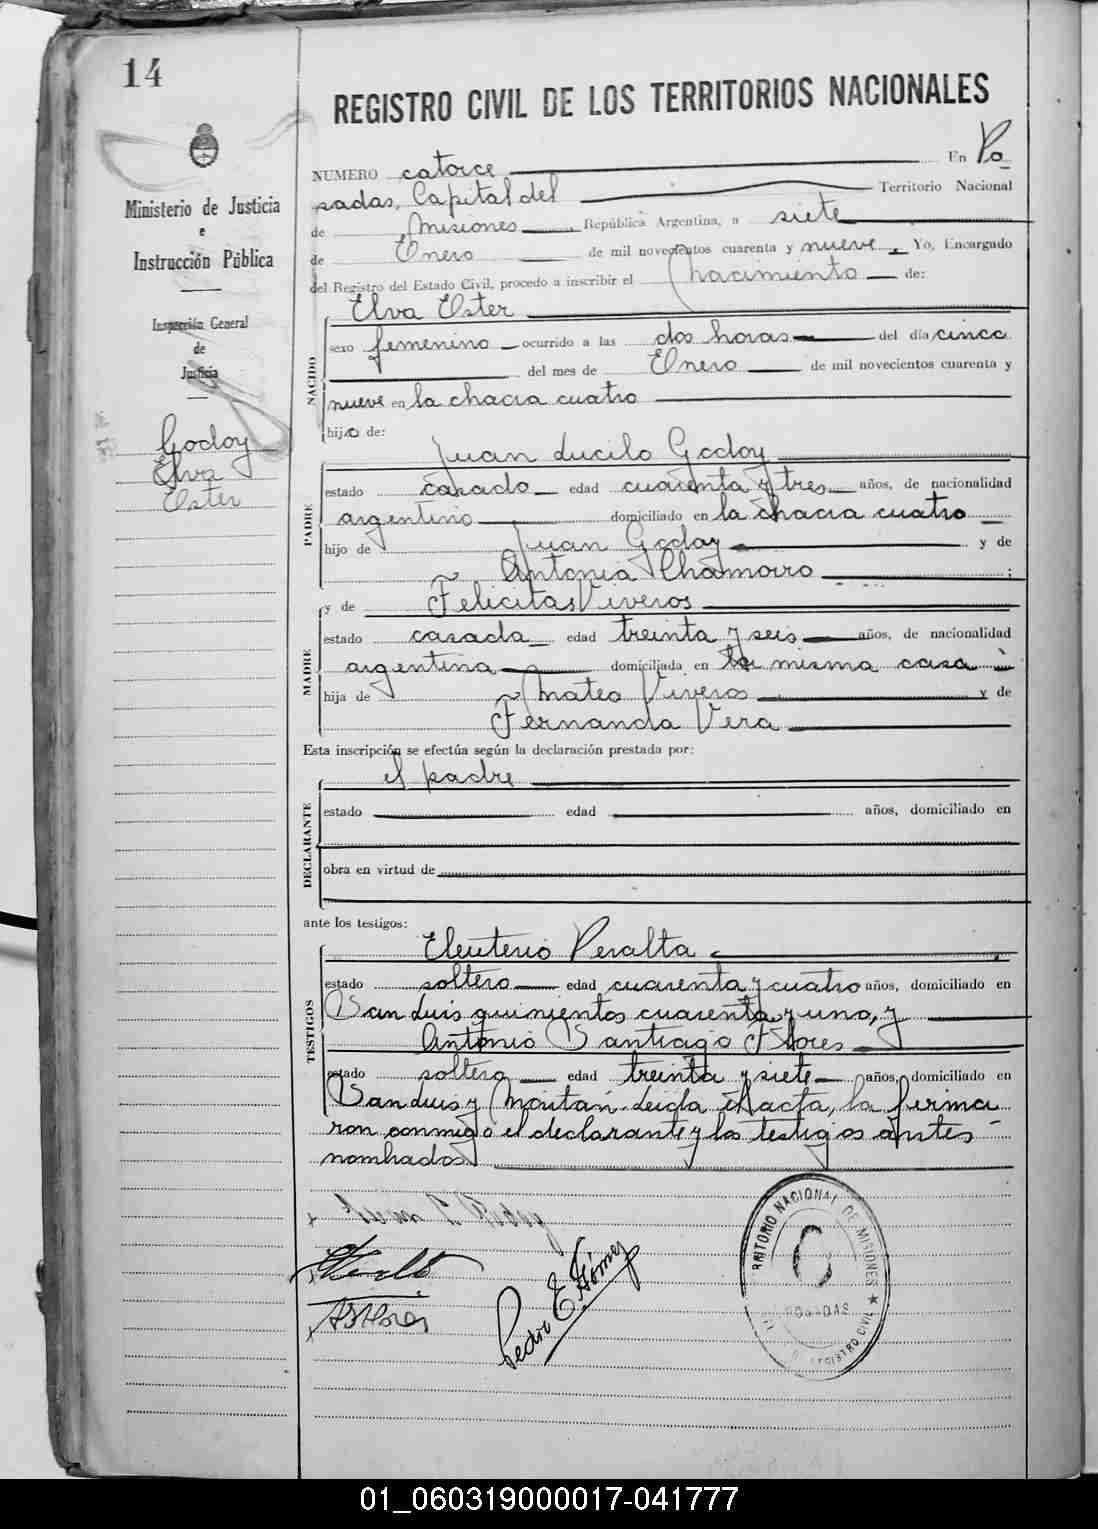 14
REGISTRO CIVIL DE LOS TERRITORIOS NACIONALES
Ministerio de Justicia
e
Instrucción Pública
Inspección General
de
Justicia
Godoy
Elva
Ester
NUMERO catorce En Po
sadas, Capital del Territorio Nacional
de Misiones, República Argentina, a siete
de Enero de mil novecientos cuarenta y nueve. Yo, Encargado
del Registro del Estado Civil, procedo a inscribir el nacimiento de:
NACIDO
Elva Ester
sexo femenino ocurrido a las dos horas del día cinco
del mes de Enero de mil novecientos cuarenta y
nueve en la chacra cuatro
hijo de:
PADRE
Juan Lucilo Godoy
estado casado edad cuarenta y tres años, de nacionalidad
argentino domiciliado en la chacra cuatro
hijo de Juan Godoy y de
Antonia Chamorro ;
MADRE
y de Felicitas Viveros
estado casada edad treinta y seis años, de nacionalidad
argentina domiciliada en la misma casa
hija de Mateo Viveros y de
Fernanda Vera
Esta inscripción se efectúa según la declaración prestada por:
DECLARANTE
el padre
estado edad años, domiciliado en
obra en virtud de
ante los testigos:
TESTIGOS
Eleuterio Peralta
estado soltero edad cuarenta y cuatro años, domiciliado en
San Luis quinientos cuarenta y uno, y
Antonio Santiago Flores
estado soltero edad treinta y siete años, domiciliado en
San Luis y Moutan. Leida el Acta, la firma
ron conmigo el declarante y los testigos antes
nombrados.
Juan L Godoy
ASFlores
Pedro E. Gómez
TERRITORIO NACIONAL DE MISIONES ★
POSADAS
REGISTRO CIVIL
01_060319000017-041777